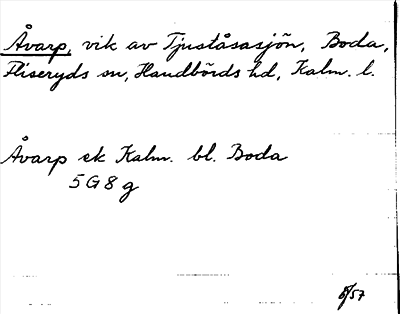 Åvarp, vik av Tjuståsasjön, Boda,
Fliseryds sn, Handbörds hd, Kalm. l.
Åvarp ek Kalm. bl. Boda
5G8g
/57